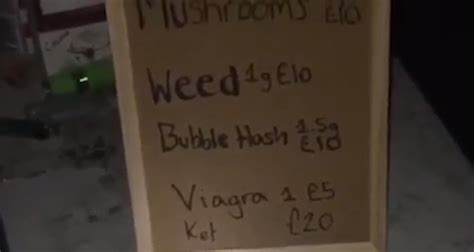 Mushrooms £10
Weed 1g £10
Bubble Hash 1.5g £10
Viagra 1 £5
Ket £20